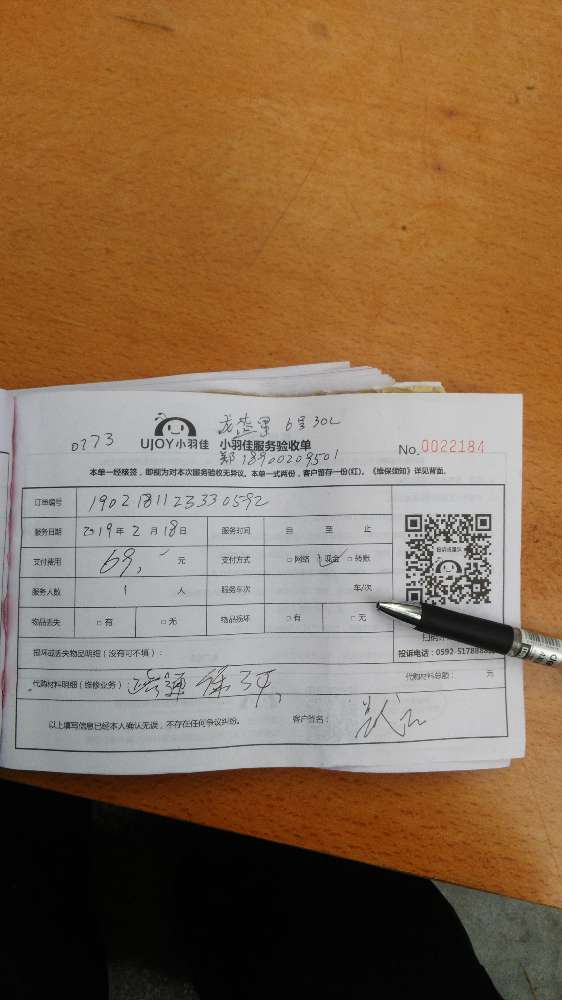 6号302
0273 UJOY小羽佳 小羽佳服务验收单 No.0022184
郑18900209501
本单一经核签，即视为对本次服务验收无异议。本单一式两份，客户留存一份(红)。《维保须知》详见背面。
订单编号 1902181123330592
服务日期 2019年2月18日 服务时间 自 至 止
支付费用 69, 元 支付方式 □网络 现金 □转账
服务人数 1 人 服务车次 车/次
物品丢失 □有 □无 物品损坏 □有 □无
投诉电话：0592-517888
损坏或丢失物品明细（没有可不填）：
代购材料明细（维修业务）： 代购材料总额： 元
以上填写信息已经本人确认无误，不存在任何争议纠纷。 客户签名：